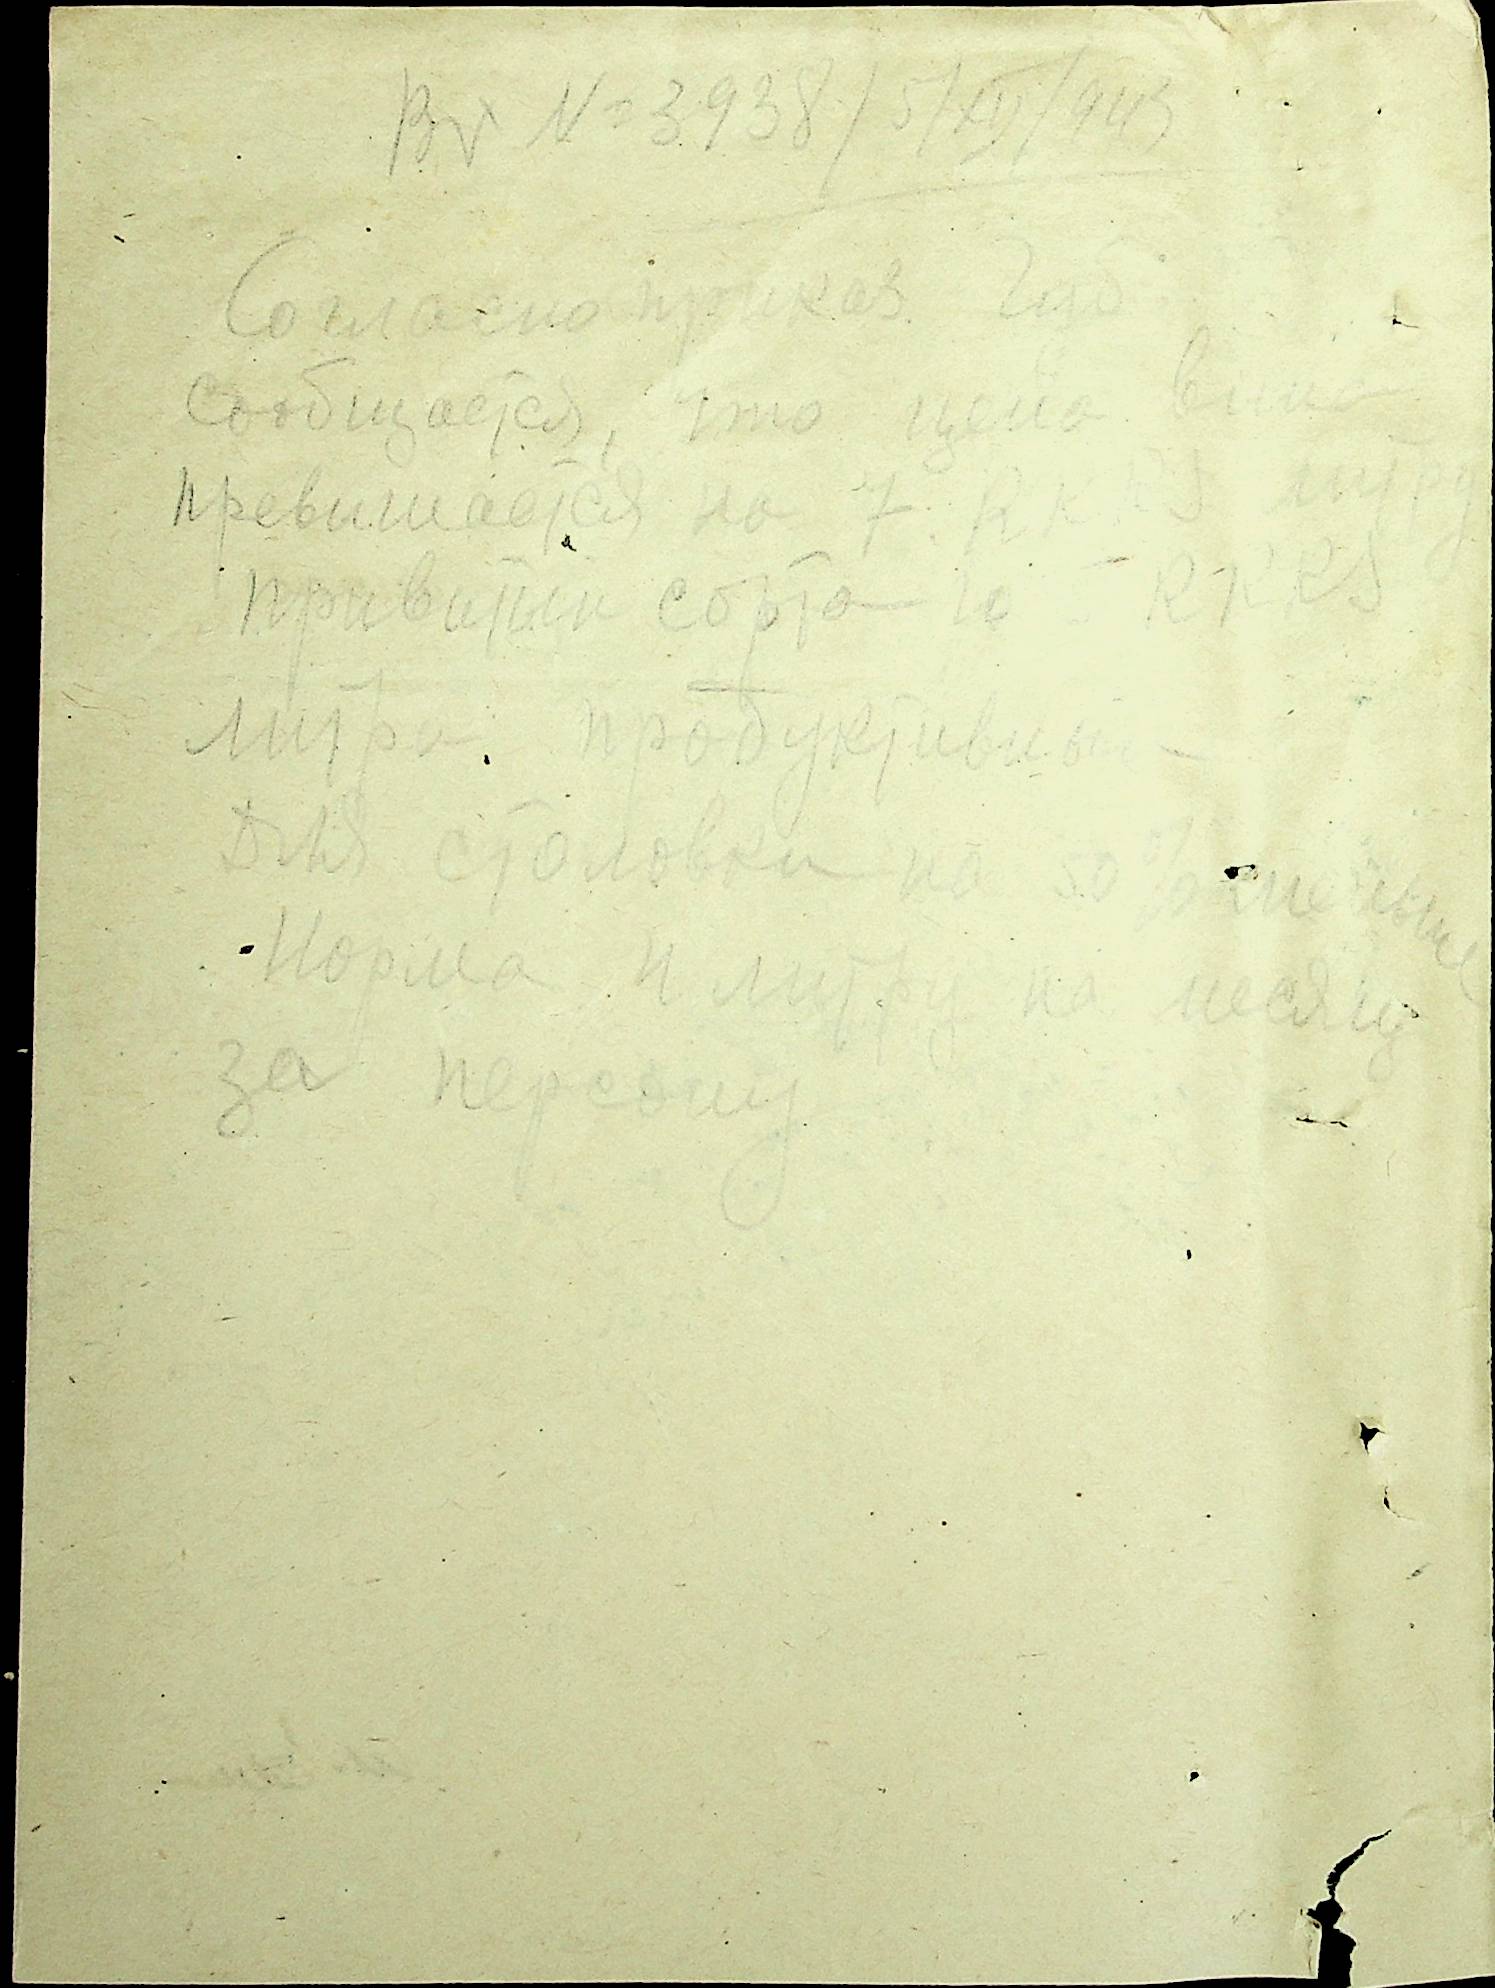 № 3938 / 5/XII/943
Согласно приказ. Губ.
сообщается, что цена вина
превишается на 7. RKKS литру
привитии сорта 10 - RKKS
литра. продуктивный
для столовки на 50% меньше
Норма 4 литру на месяцу
за персону